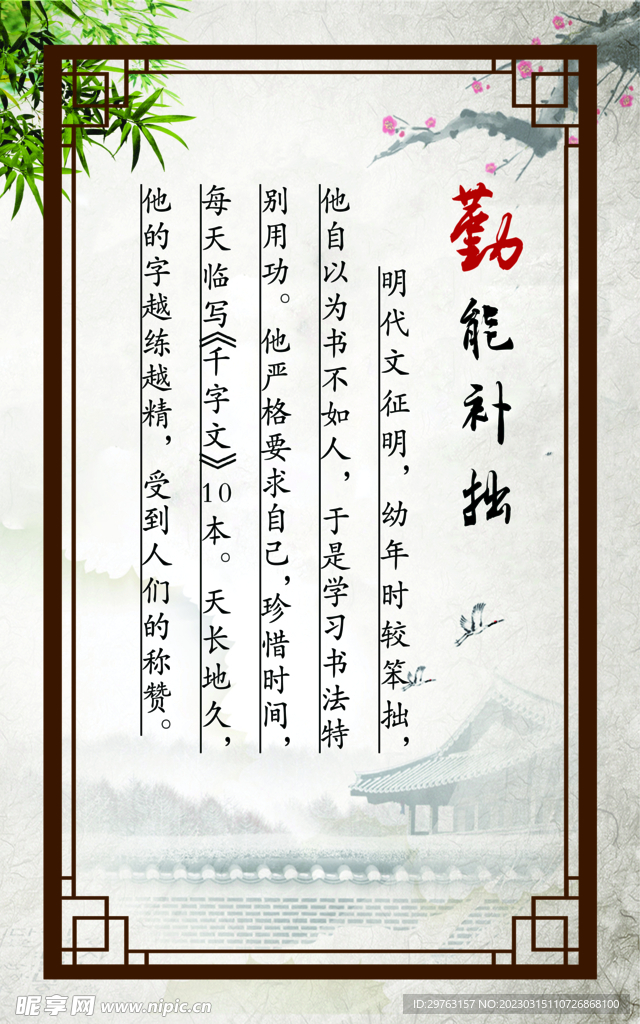 勤能补拙
明代文征明，幼年时较笨拙，
他自以为书不如人，于是学习书法特
别用功。他严格要求自己，珍惜时间，
每天临写《千字文》10本。天长地久，
他的字越练越精，受到人们的称赞。
昵享网 www.nipic.cn
ID:29763157 NO:20230315110726868100